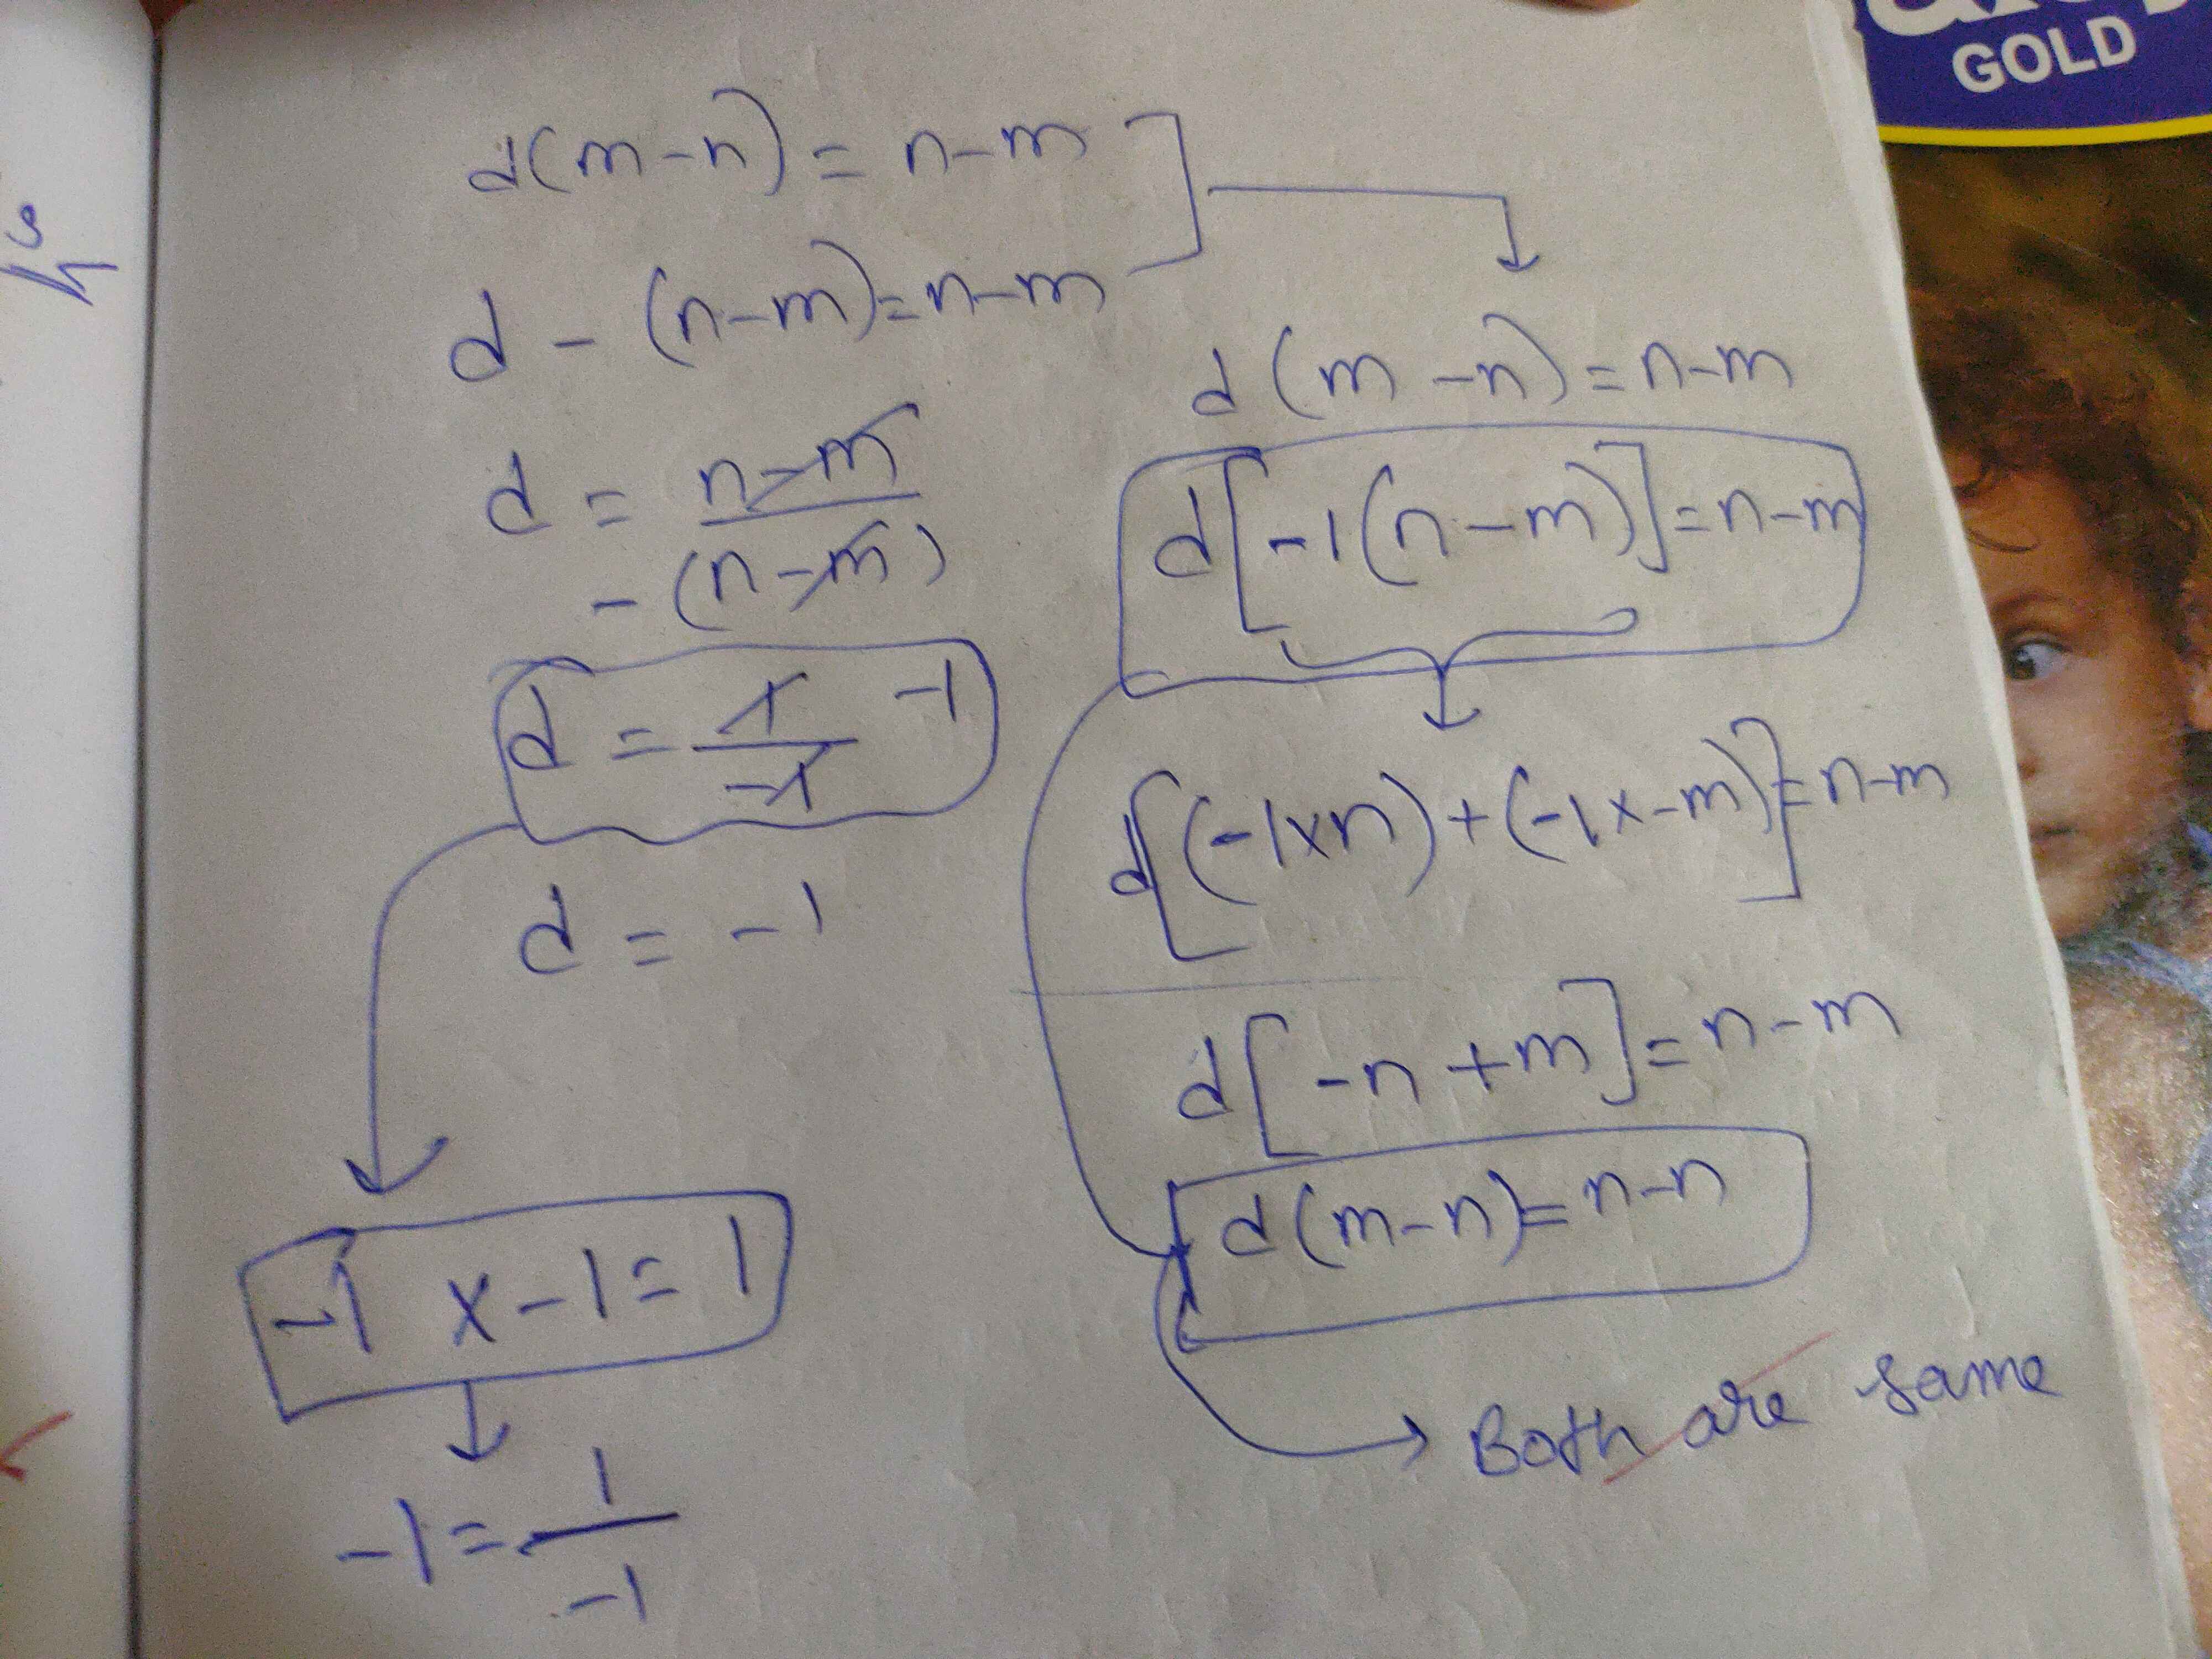 GOLD
d(m-n) = n-m
d - (n-m)=n-m
d = n-m
-(n-m)
d = 1 -1
-1
d = -1
-1 x -1 = 1
-1 = 1
-1
d (m -n) = n-m
d[-1(n-m)] = n-m
d[(-1xn)+(-1x-m)]=n-m
d[-n +m] = n-m
d(m-n)=n-n
Both are same